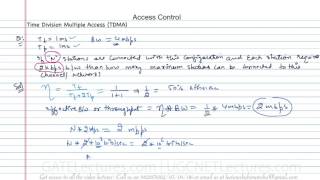 Access Control
Time Division Multiple Access (TDMA)
Q: Tt = 1ms BW = 4mbps
Tp = 1ms
If 'N' stations are connected with this configuration and each station requires
2kbps b/w then how many maximum stations can be connected to this
channel (network)
Sol) η = Tt / Tt + Tp = 1 / 1+1 = 1/2 = 50% efficient
effective BW or throughput = η * BW = 1/2 * 4mbps = 2mbps
N * 2kbps = 2 mbps
N * 2 * 10³ bits/sec = 2 * 10⁶ bits/sec
GATELectures.com | UGCNETLectures.com